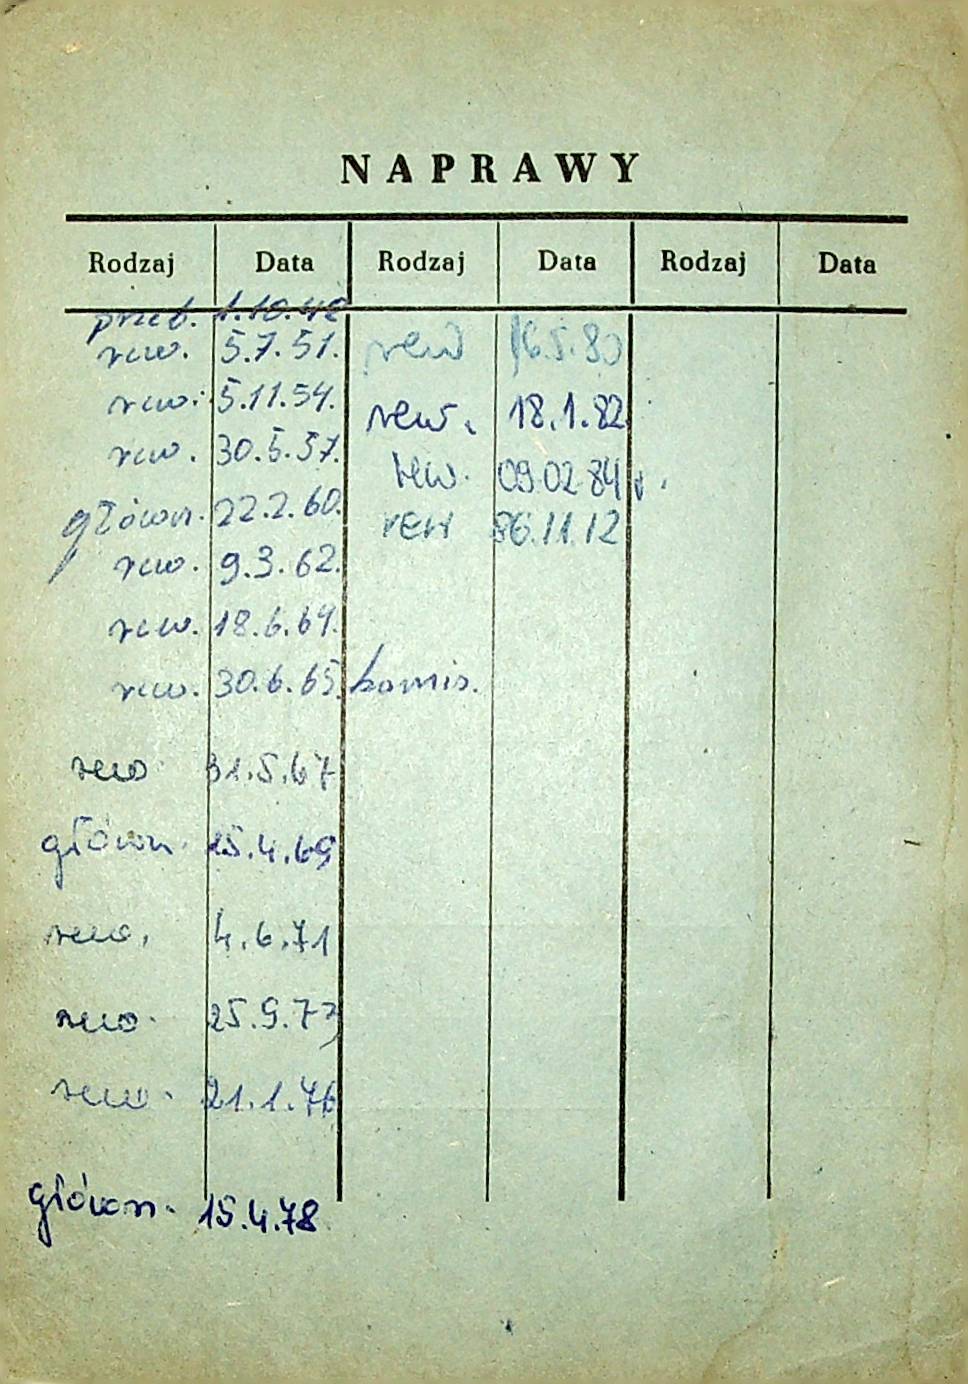 NAPRAWY
Rodzaj Data Rodzaj Data Rodzaj Data
przeb. 1.10.48
rew. 5.7.51. rew 16.5.80
rew. 5.11.54. rew. 18.1.82
rew. 30.5.57. rew. 09.02.84 r.
główn. 22.2.60. rew 86.11.12
rew. 9.3.62.
rew. 18.6.64.
rew. 30.6.65. komis.
rew. 31.5.67
główn. 15.4.69
rew. 4.6.71
rew. 25.9.73
rew. 21.1.76
główn. 15.4.78